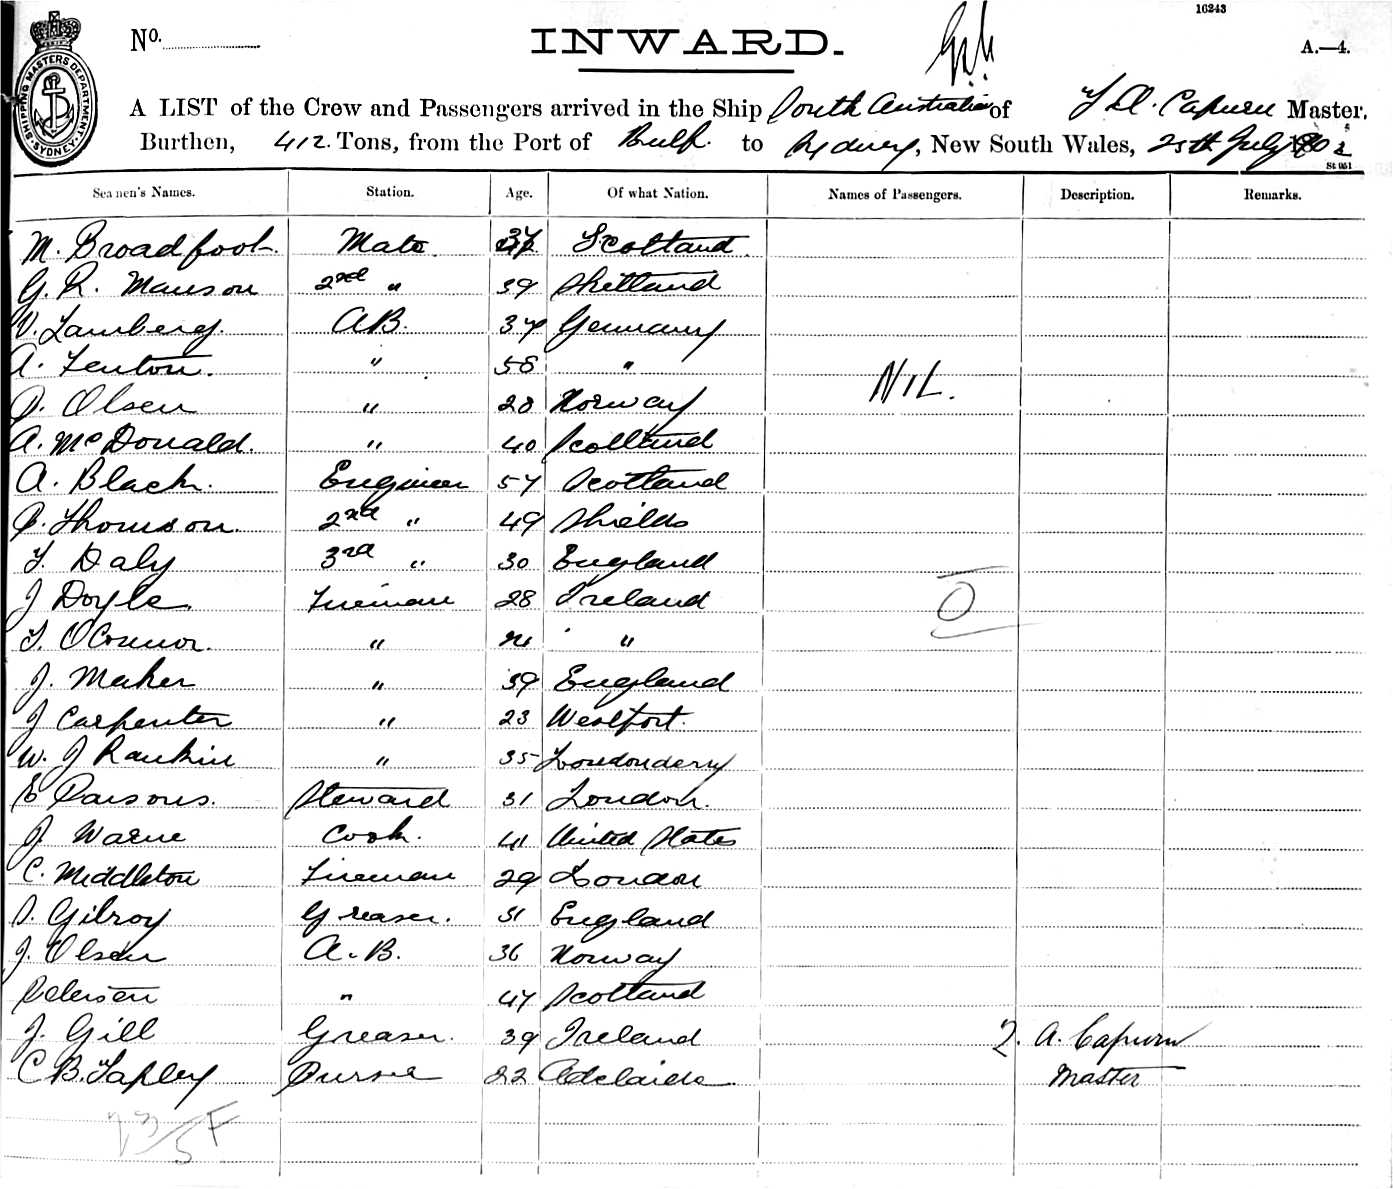 16243
No.
INWARD.
A.—4.
SHIPPING MASTERS DEPARTMENT SYDNEY
A LIST of the Crew and Passengers arrived in the Ship South Australian of A. Capurn Master,
Burthen, 412 Tons, from the Port of to Sydney, New South Wales, 25th July 1902
St 951
Seamen's Names. Station. Age. Of what Nation. Names of Passengers. Description. Remarks.
M. Broadfoot. Mate. Scotland.
G. R. Manson 2nd " 39 Shetland
V. Lamberg. AB. 37 Germany
A. Fenton. " 58 "
Olsen " 28 Norway
NIL.
A. McDonald. " 40 Scotland
A. Black. Engineer 57 Scotland
Thomson. 2nd " 49 Shields
T. Daly 3rd " 30 England
J Doyle Fireman 28 Ireland
O
T. OConnor. " 21 "
J. Maher " 39 England
J Carpenter " 23 Westport.
W. J Rankin " 35 Londonderry
E Parsons. Steward 31 London.
J. Warne Cook. 41 United States
C. Middleton Fireman 29 London
Gilroy Greaser. 31 England
J. Olsen A.B. 36 Norway
Petersen " 47 Scotland
J. Gill Greaser. 39 Ireland A. Capurn
C B. Tapley Purser 22 Adelaide Master
23/5 F